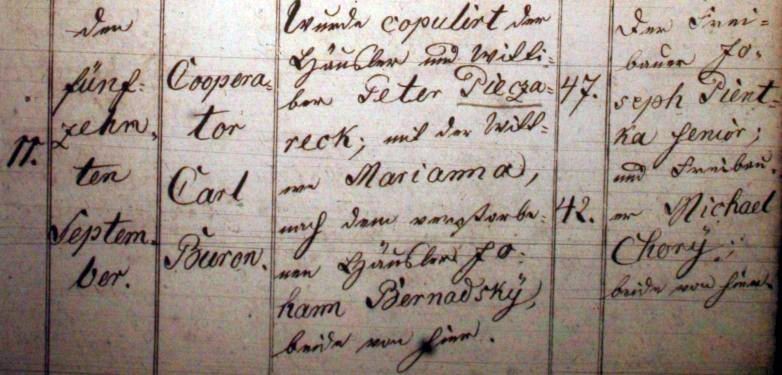 11.
den
fünf-
zehn-
ten
Septem-
ber.
Coopera-
tor
Carl
Buron.
Wurde copulirt der
Häusler und Witti-
ber Peter Piecza-
reck, mit der Witt-
we Marianna,
nach dem verstorbe-
nen Häusler Jo-
hann Bernadsky,
beide von hier.
47.
42.
Der Frei-
bauer Jo-
seph Pient-
ka senior;
und Freibau-
er Michael
Chorÿ;
beide von hier.